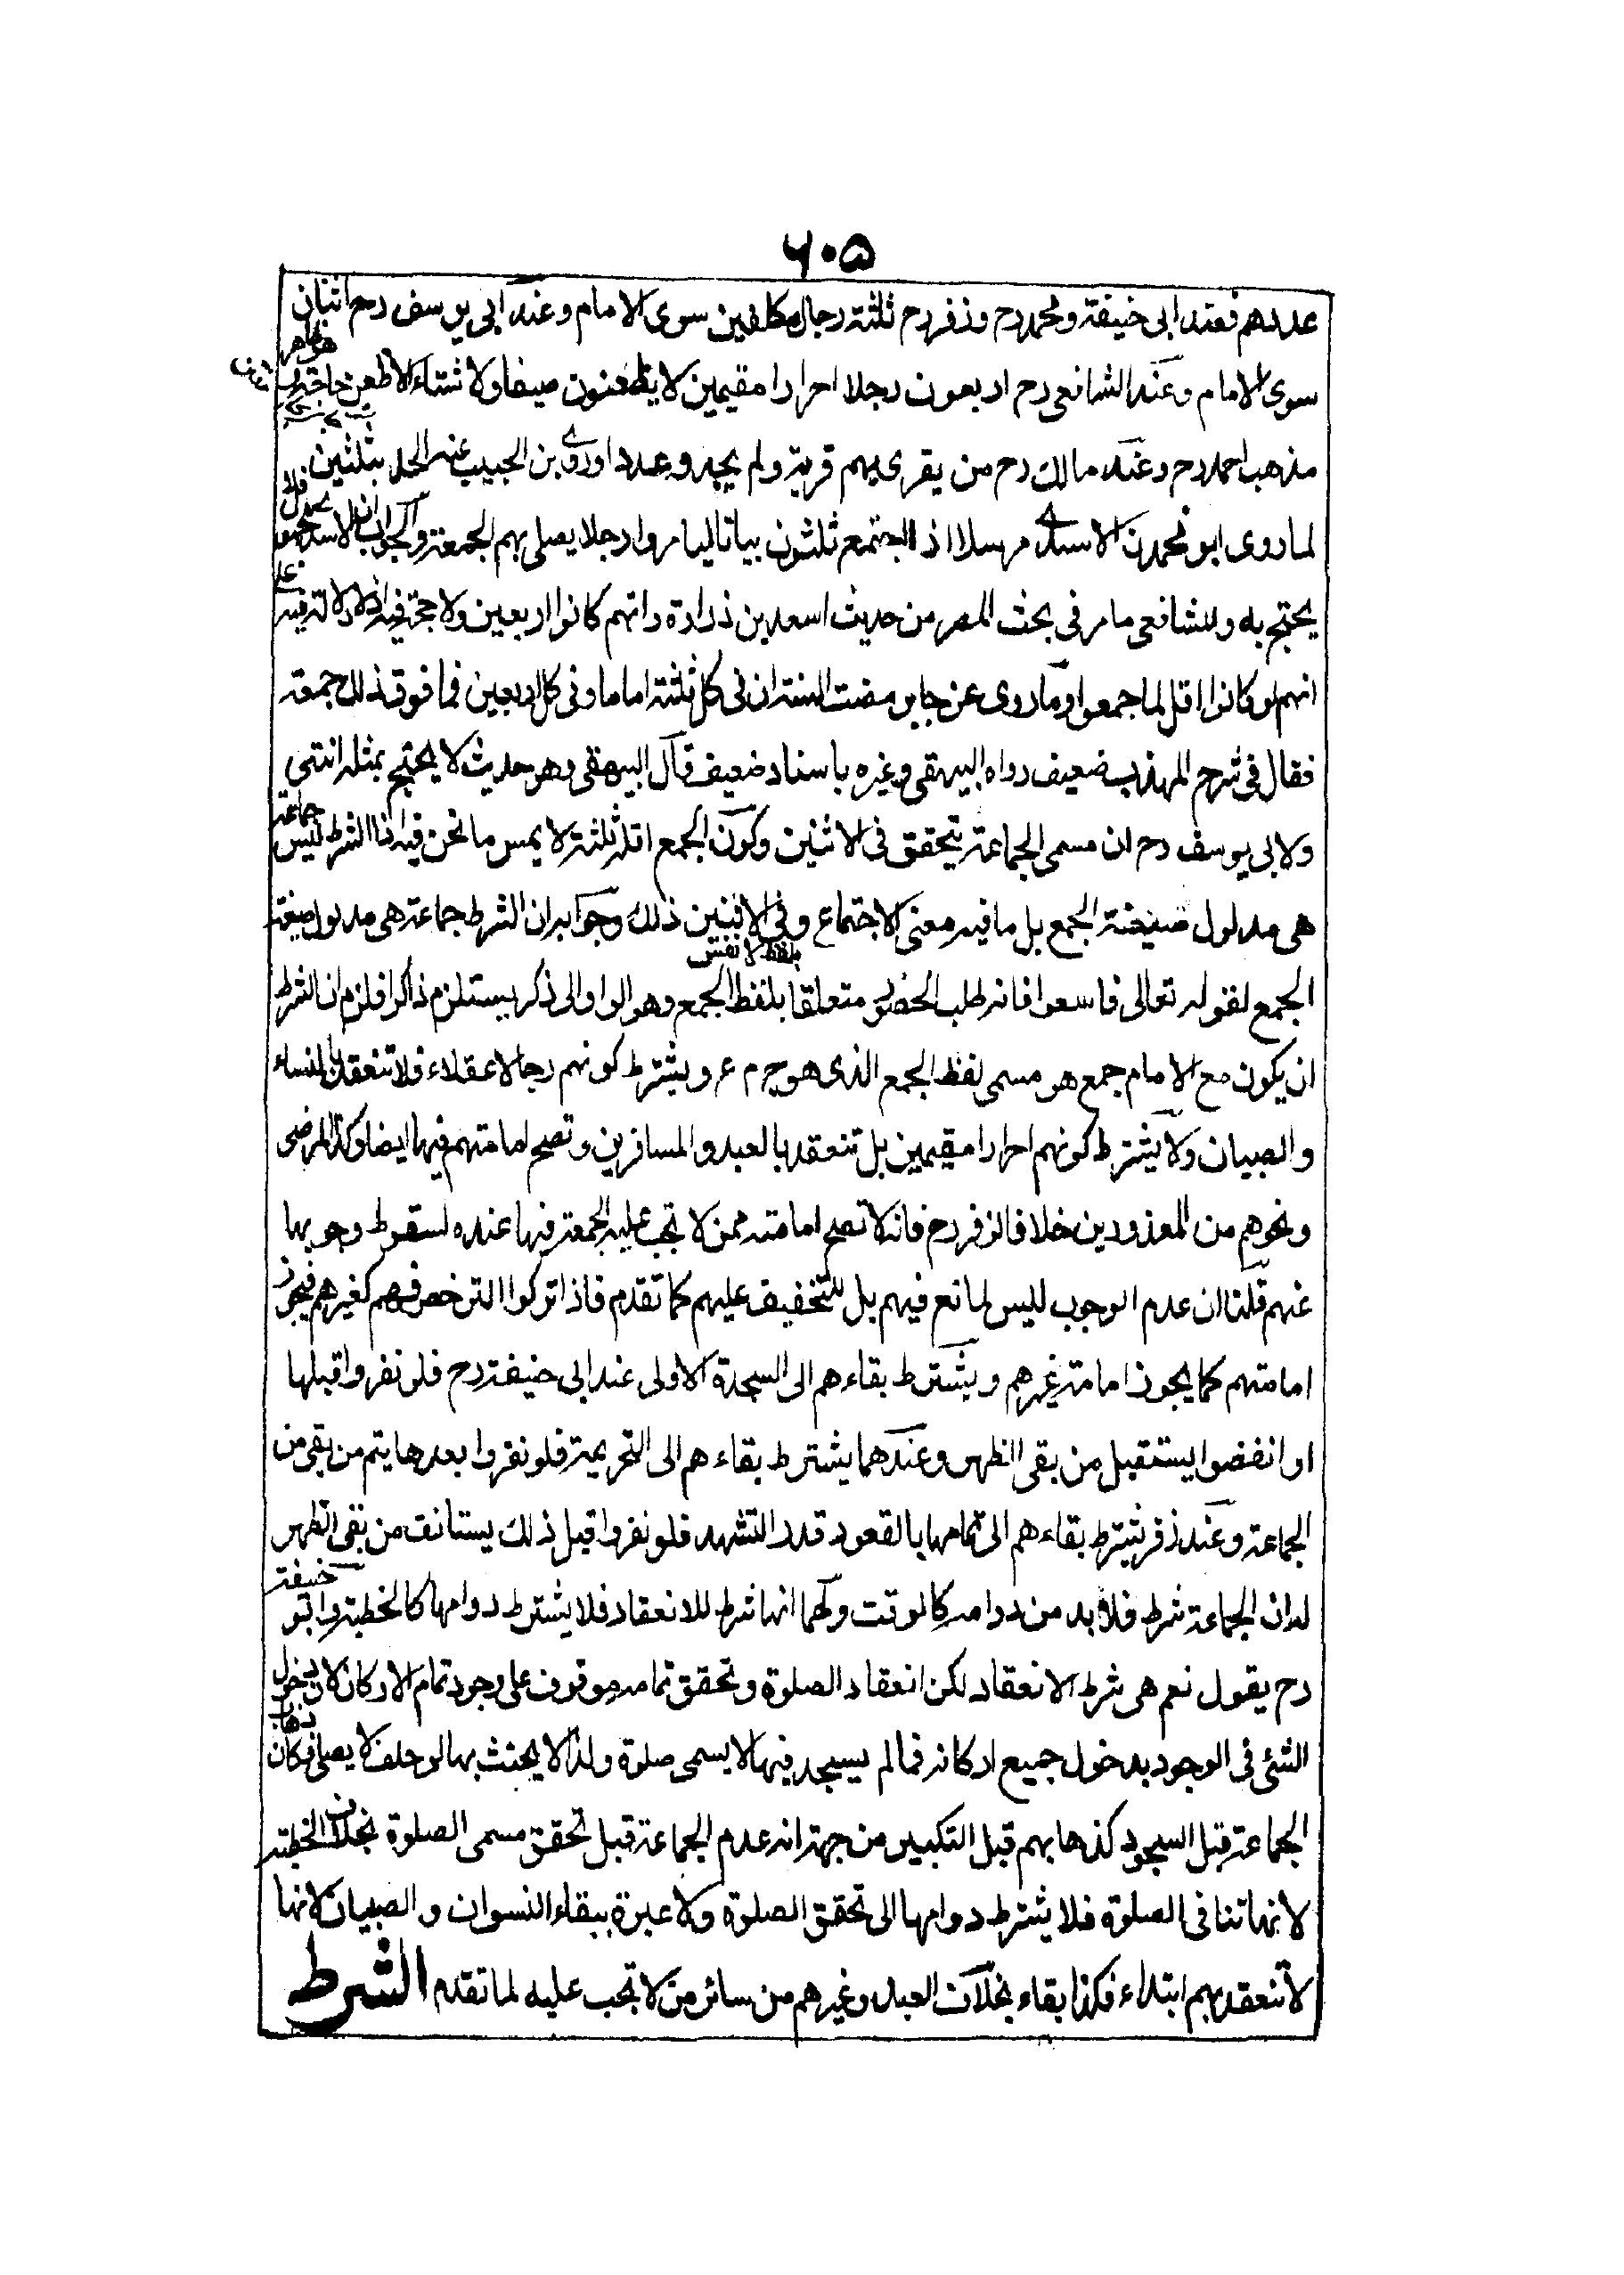 ۶۰۵
عددهم فعند ابى حنيفة ومحمد رح وزفر رح ثلثة رجال مكلفين سوى الامام وعند ابى يوسف رح اثنان
سوى الامام وعند الشافعى رح اربعون رجلا احرارا مقيمين لا يظعنون صيفا ولا شتاء الا ظعن حاجة وهو ظاهر
مذهب احمد رح وعند مالك رح من يقرى بهم قرية ولم يجد وعدد اوروى بن الحبيب عنه الحد بثلثين
لما روى ابو محمد الاسدى مرسلا اذا اجتمع ثلثون بياتا ليامروا رجلا يصلى بهم الجمعة والجواب ان الاسدى مجهول فلا
يحتج به وللشافعى ما مر فى بحث المصر من حديث اسعد بن زرارة وانهم كانوا اربعين ولا حجة فيه اذ لا دلالة فيه على
انهم لو كانوا اقل لما جمعوا وما روى عن جابر مضت السنة ان فى كل ثلثة اماما وفى كل اربعين فما فوق ذلك جمعة
فقال فى شرح المهذب ضعيف رواه البيهقى وغيره باسناد ضعيف قال البيهقى وهو حديث لا يحتج بمثله انتهى
ولابى يوسف رح ان مسمى الجماعة يتحقق فى الاثنين وكون الجمع اقله ثلثة لا يمس ما نحن فيه اذ الشرط ليس جماعة
هى مدلول صيغة الجمع بل ما فيه معنى الاجتماع وفى الاثنين ذلك وجوابه ان الشرط جماعة هى مدلول صيغة
الجمع لقوله تعالى فاسعوا فانه طلب الحضور متعلقا بلفظ الجمع وهو الواو الى ذكر يستلزم ذاكرا فلزم ان الشرط
ان يكون مع الامام جمع هو مسمى لفظ الجمع الذى هو ج م ع ويشترط كونهم رجالا عقلاء فلا تنعقد بالنساء
والصبيان ولا يشترط كونهم احرارا مقيمين بل تنعقد بالعبد والمسافرين وتصح امامتهم فيها ايضا وكذا المرضى
ونحوهم من المعذورين خلافا لزفر رح فانه لا تصح امامته ممن لا تجب عليه الجمعة فيها عنده لسقوط وجوبها
عنهم قلنا ان عدم الوجوب ليس لمانع فيهم بل للتخفيف عليهم كما تقدم فاذا تركوا الترخص فهم كغيرهم فيجوز
امامتهم كما يجوز امامة غيرهم ويشترط بقاءهم الى السجدة الاولى عند ابى حنيفة رح فلو نفروا قبلها
او انفضوا يستقبل من بقى الظهر وعندهما يشترط بقاءهم الى التحريمة فلو نفروا بعدها يتم من بقى من
الجماعة وعند زفر يشترط بقاءهم الى تمامها بالقعود قدر التشهد فلو نفروا قبل ذلك يستانف من بقى الظهر
له ان الجماعة شرط فلا بد من دوامه كالوقت ولهما انها شرط للانعقاد فلا يشترط دوامها كالخطبة وابو حنيفة
رح يقول نعم هى شرط الانعقاد لكن انعقاد الصلوة وتحقق تمامه موقوف على وجود تمام الاركان لان دخول
الشئ فى الوجود بدخول جميع اركانه فما لم يسجد فيها لا يسمى صلوة ولذا لا يحنث بها لو حلف لا يصلى فكان ذهاب
الجماعة قبل السجود كذهابهم قبل التكبير من جهة انه عدم الجماعة قبل تحقق مسمى الصلوة بخلاف الخطبة
لانها تنافى الصلوة فلا يشترط دوامها الى تحقق الصلوة ولا عبرة ببقاء النسوان والصبيان لانها
لا تنعقد بهم ابتداء فكذا بقاء بخلاف العبد وغيرهم من سائر من لا تجب عليه لما تقدم الشرط